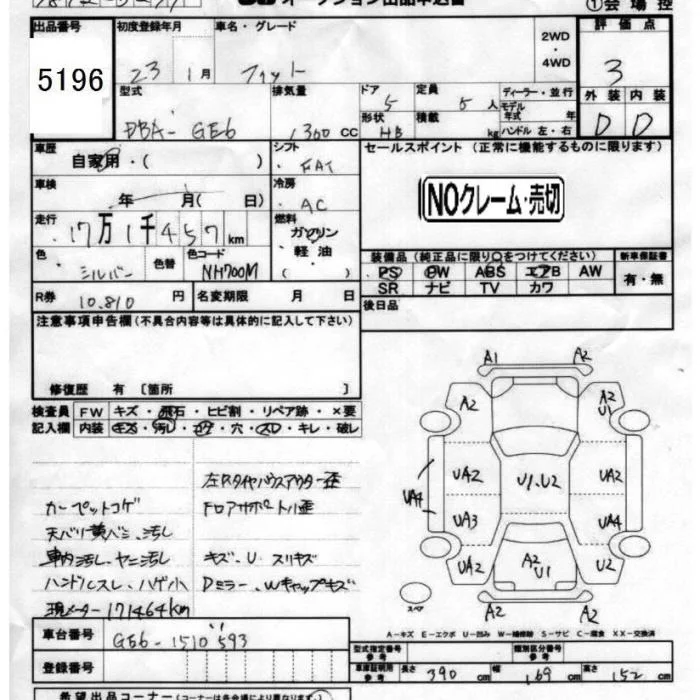 オークション出品申込書
①会場控
出品番号 初度登録年月 車名・グレード 2WD・4WD 評価点
5196 23 1月 フィット 3
型式 排気量 ドア 定員 ディーラー・並行 外装 内装
DBA-GE6 1300 CC 5 5人 モデル年式 年 D D
形状 HB 積載 kg ハンドル 左・右
車歴 自家用・( ) シフト FAT セールスポイント (正常に機能するものに限ります)
車検 年 月( 日) 冷房 AC NOクレーム・売切
走行 17万1千457km 燃料 ガソリン・軽油 ( )
色 シルバー 色替 色コード NH700M
装備品 (純正品に限り○をつけてください) 新車保証書
PS PW ABS エアB AW 有・無
SR ナビ TV カワ
R券 10,810円 名変期限 月 日 後日品
注意事項申告欄 (不具合内容等は具体的に記入して下さい)
修復歴 有 〔箇所 〕
検査員 FW キズ・飛石・ヒビ割・リペア跡・×要
記入欄 内装 キズ・汚れ・コゲ・穴・スレ・キレ・破レ
左Rタイヤハウスアウター歪
カーペットコゲ Fロアサポート小歪
天バリ黄バミ、汚レ
車内汚レ・ヤニ汚レ キズ・U スリキズ
ハンドルスレ・ハゲ小 Dミラー、Wキャップキズ
現メーター171464km
A1 A2
A2 A2 U1
UA2 U1.U2 UA2
UA4 UA3 UA4
UA2 A2 U1 U2
A2 A2
スペア
A-キズ E-エクボ U-凹み W-補修跡 S-サビ C-腐食 XX-交換済
車台番号 GE6-1510593
登録番号
型式指定番号 参考 類別区分番号 参考
車庫証明用 参考 長さ 390 cm 幅 169 cm 高さ 152 cm
希望出品コーナー